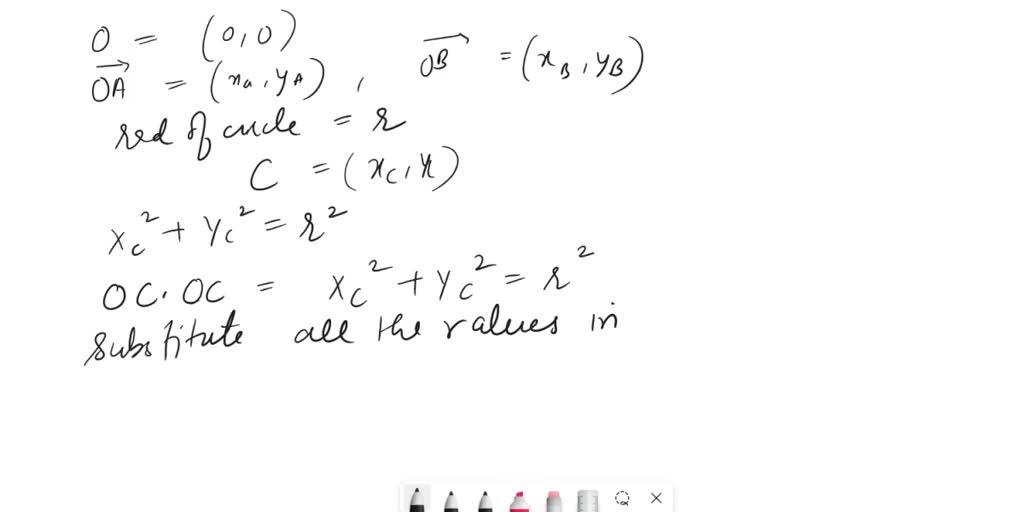 O = (0,0)
OA = (xₐ, y_A), OB = (x_B, y_B)
rad of circle = r
C = (x_C, y_C)
x_C² + y_C² = r²
OC. OC = x_C² + y_C² = r²
substitute all the values in